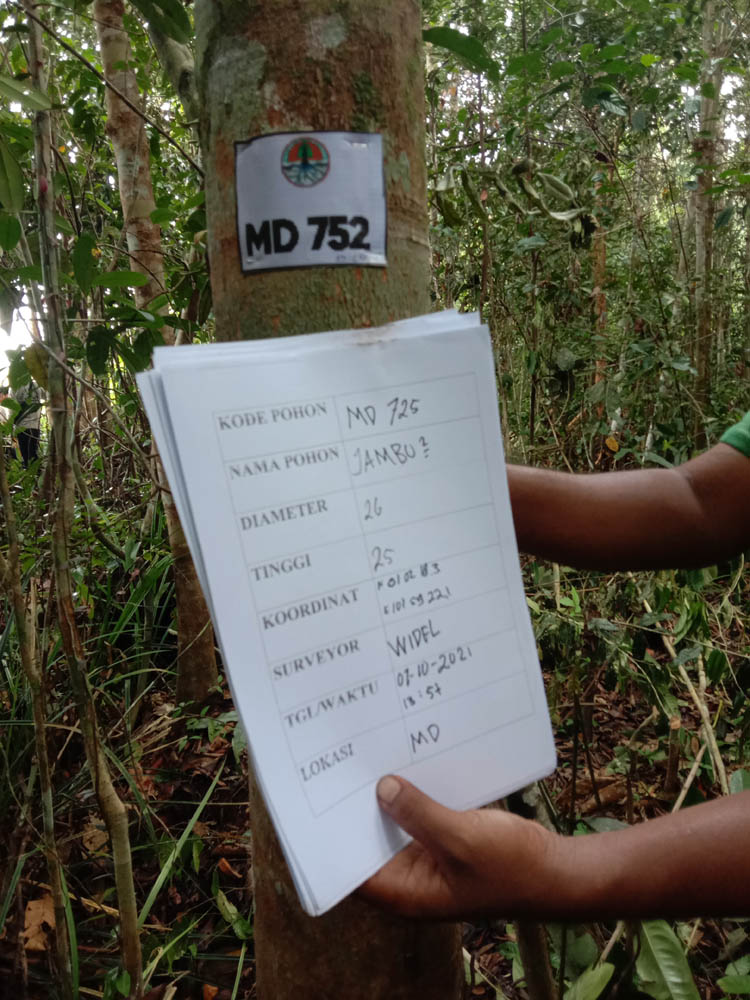 MD 752
KODE POHON MD 725
NAMA POHON JAMBU2
DIAMETER 26
TINGGI 25
KOORDINAT
E 101 59 221
SURVEYOR WIDEL
TGL/WAKTU 07-10-2021
13:57
LOKASI MD